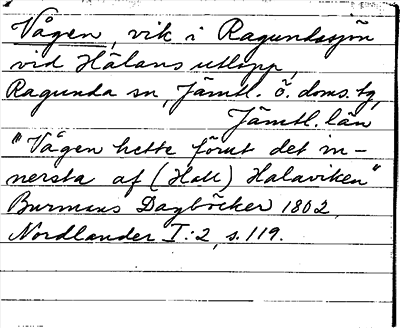 Vågen, vik i Ragundasjön
vid Hälans utlopp,
Ragunda sn, Jämtl. ö. doms. tg,
Jämtl. län
"Vågen hette förut det in-
nersta af (Hall) Halaviken"
Burmans Dagböcker 1802,
Nordlander I:2, s. 119.